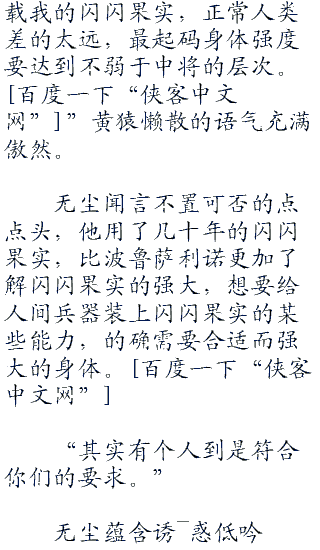 载我的闪闪果实，正常人类
差的太远，最起码身体强度
要达到不弱于中将的层次。
[百度一下“侠客中文
网”]”黄猿懒散的语气充满
傲然。
无尘闻言不置可否的点
点头，他用了几十年的闪闪
果实，比波鲁萨利诺更加了
解闪闪果实的强大，想要给
人间兵器装上闪闪果实的某
些能力，的确需要合适而强
大的身体。[百度一下“侠客
中文网”]
“其实有个人到是符合
你们的要求。”
无尘蕴含诱¯惑低吟